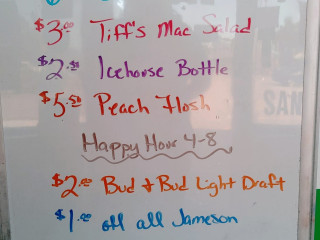 $3.00 Tiff's Mac Salad
$2.50 Icehouse Bottle
$5.50 Peach Hosh
Happy Hour 4-8
$2.00 Bud & Bud Light Draft
$1.00 off all Jameson
SAM